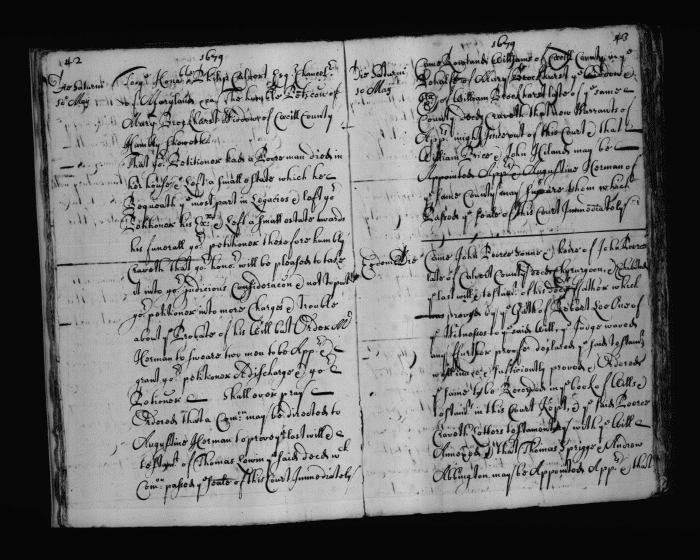 42
1679
Die Saturni
10º May
To ye Honable Philip Calvert Esqr Chancellr
of Maryland &ca The humble Peticon of
Mary Brockhurst Widdow of Cecill County
Humbly sheweth
That yor Petitioner had a Poore man dieed in
her house & Left a small estate which he
Bequeath ye most part in Legacies & left yor
Petitioner his Exrx & Left a small estate towards
his funerall yor petitioner therefore humbly
Craveth that yor honor will be pleased to take
it into yor Judicious Consideracon & not to putt
yor petitioner into more Charges & trouble
about ye Probate of his Will but Order Mr
Herman to sweare two men to be Apprs &
grant yor petitioner A discharge & yor
Petioner shall ever pray
Ordered that a Comn may be directed to
Augustine Herman to prove ye last will &
testamt of Thomas Lowin ye said decd wch
Comn passed ye seale of this Court Immediately
43
1679
Die Saturni
10 May
Came Rowland Williams of Cecill County in ye
Behalfe of Mary Brockhurst ye Widdow
of William Brockhurst late of ye same
County decd Craveth that new Warrants of
Appmt might Issue out of this Court & that
William Price & John Hiland may be
Appointed Apprs & Augustine Herman of
ye same County may sweare them which
Passed ye seale of this Court Immediately
Eodem Die
Came John Peerce sonne & heire of John Peerce
late of Calvert County decd Chyrurgeon & Exhibited
ye last will & testamt of his said father which
was proved by ye Oath of Robert Lee one of
ye Witnesses to ye said Will, ye Judge waved
any further proofe declared ye said testamt
well and sufficiently proved & Ordered
ye same to be Recorded in ye booke of Wills &
testamts in this Court Kept, & ye said Peerce
Craveth letters testamentary with ye will
Annexed & that Thomas Sprigg & Andrew
Abington may be Appointed Apprs & that